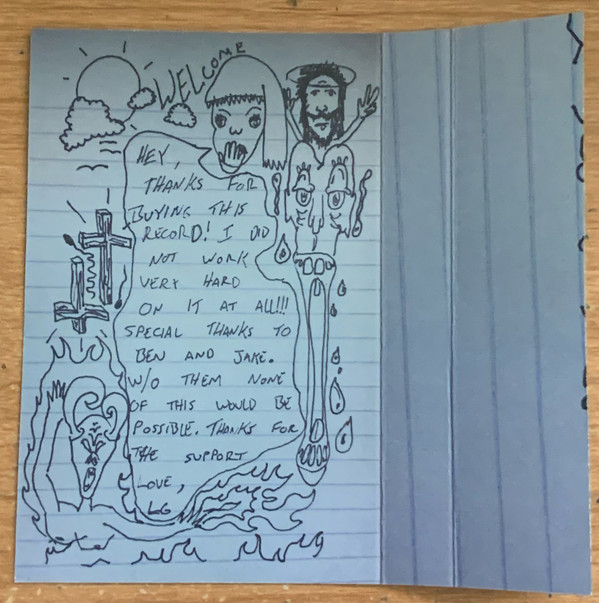 WELCOME
HEY,
THANKS FOR
BUYING THIS
RECORD! I DID
NOT WORK
VERY HARD
ON IT AT ALL!!!
SPECIAL THANKS TO
BEN AND JAKE.
W/O THEM NONE
OF THIS WOULD BE
POSSIBLE. THANKS FOR
THE SUPPORT
LOVE,
LG